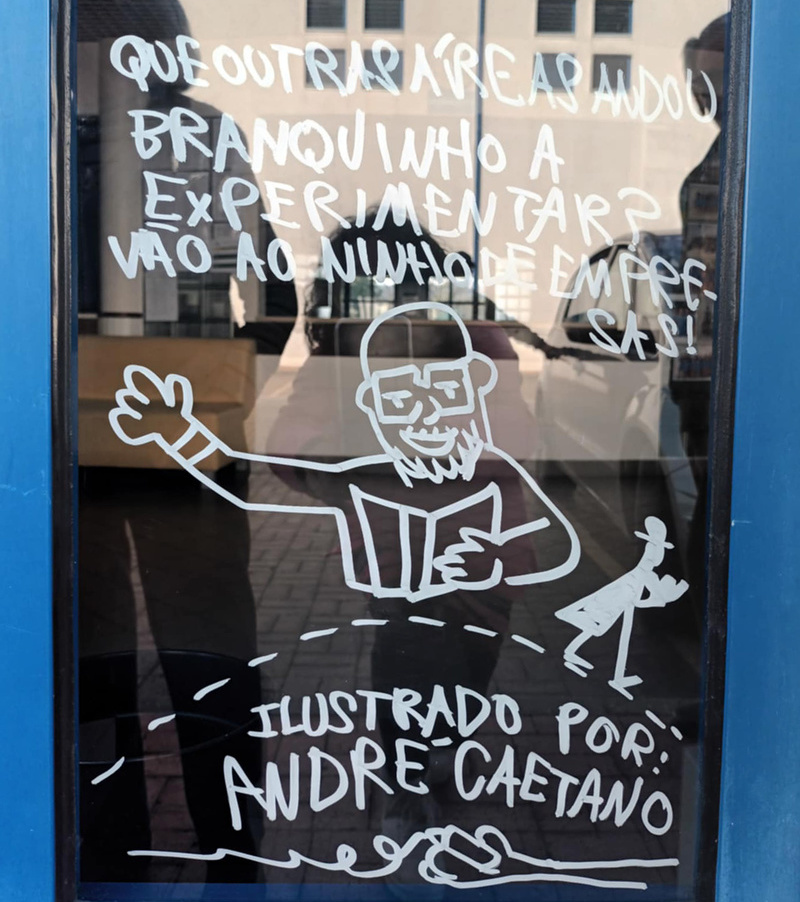 QUE OUTRAS ÁREAS ANDOU
BRANQUINHO A
EXPERIMENTAR?
VÃO AO NINHO DE EMPRE-
SAS!
ILUSTRADO POR:
ANDRÉ CAETANO